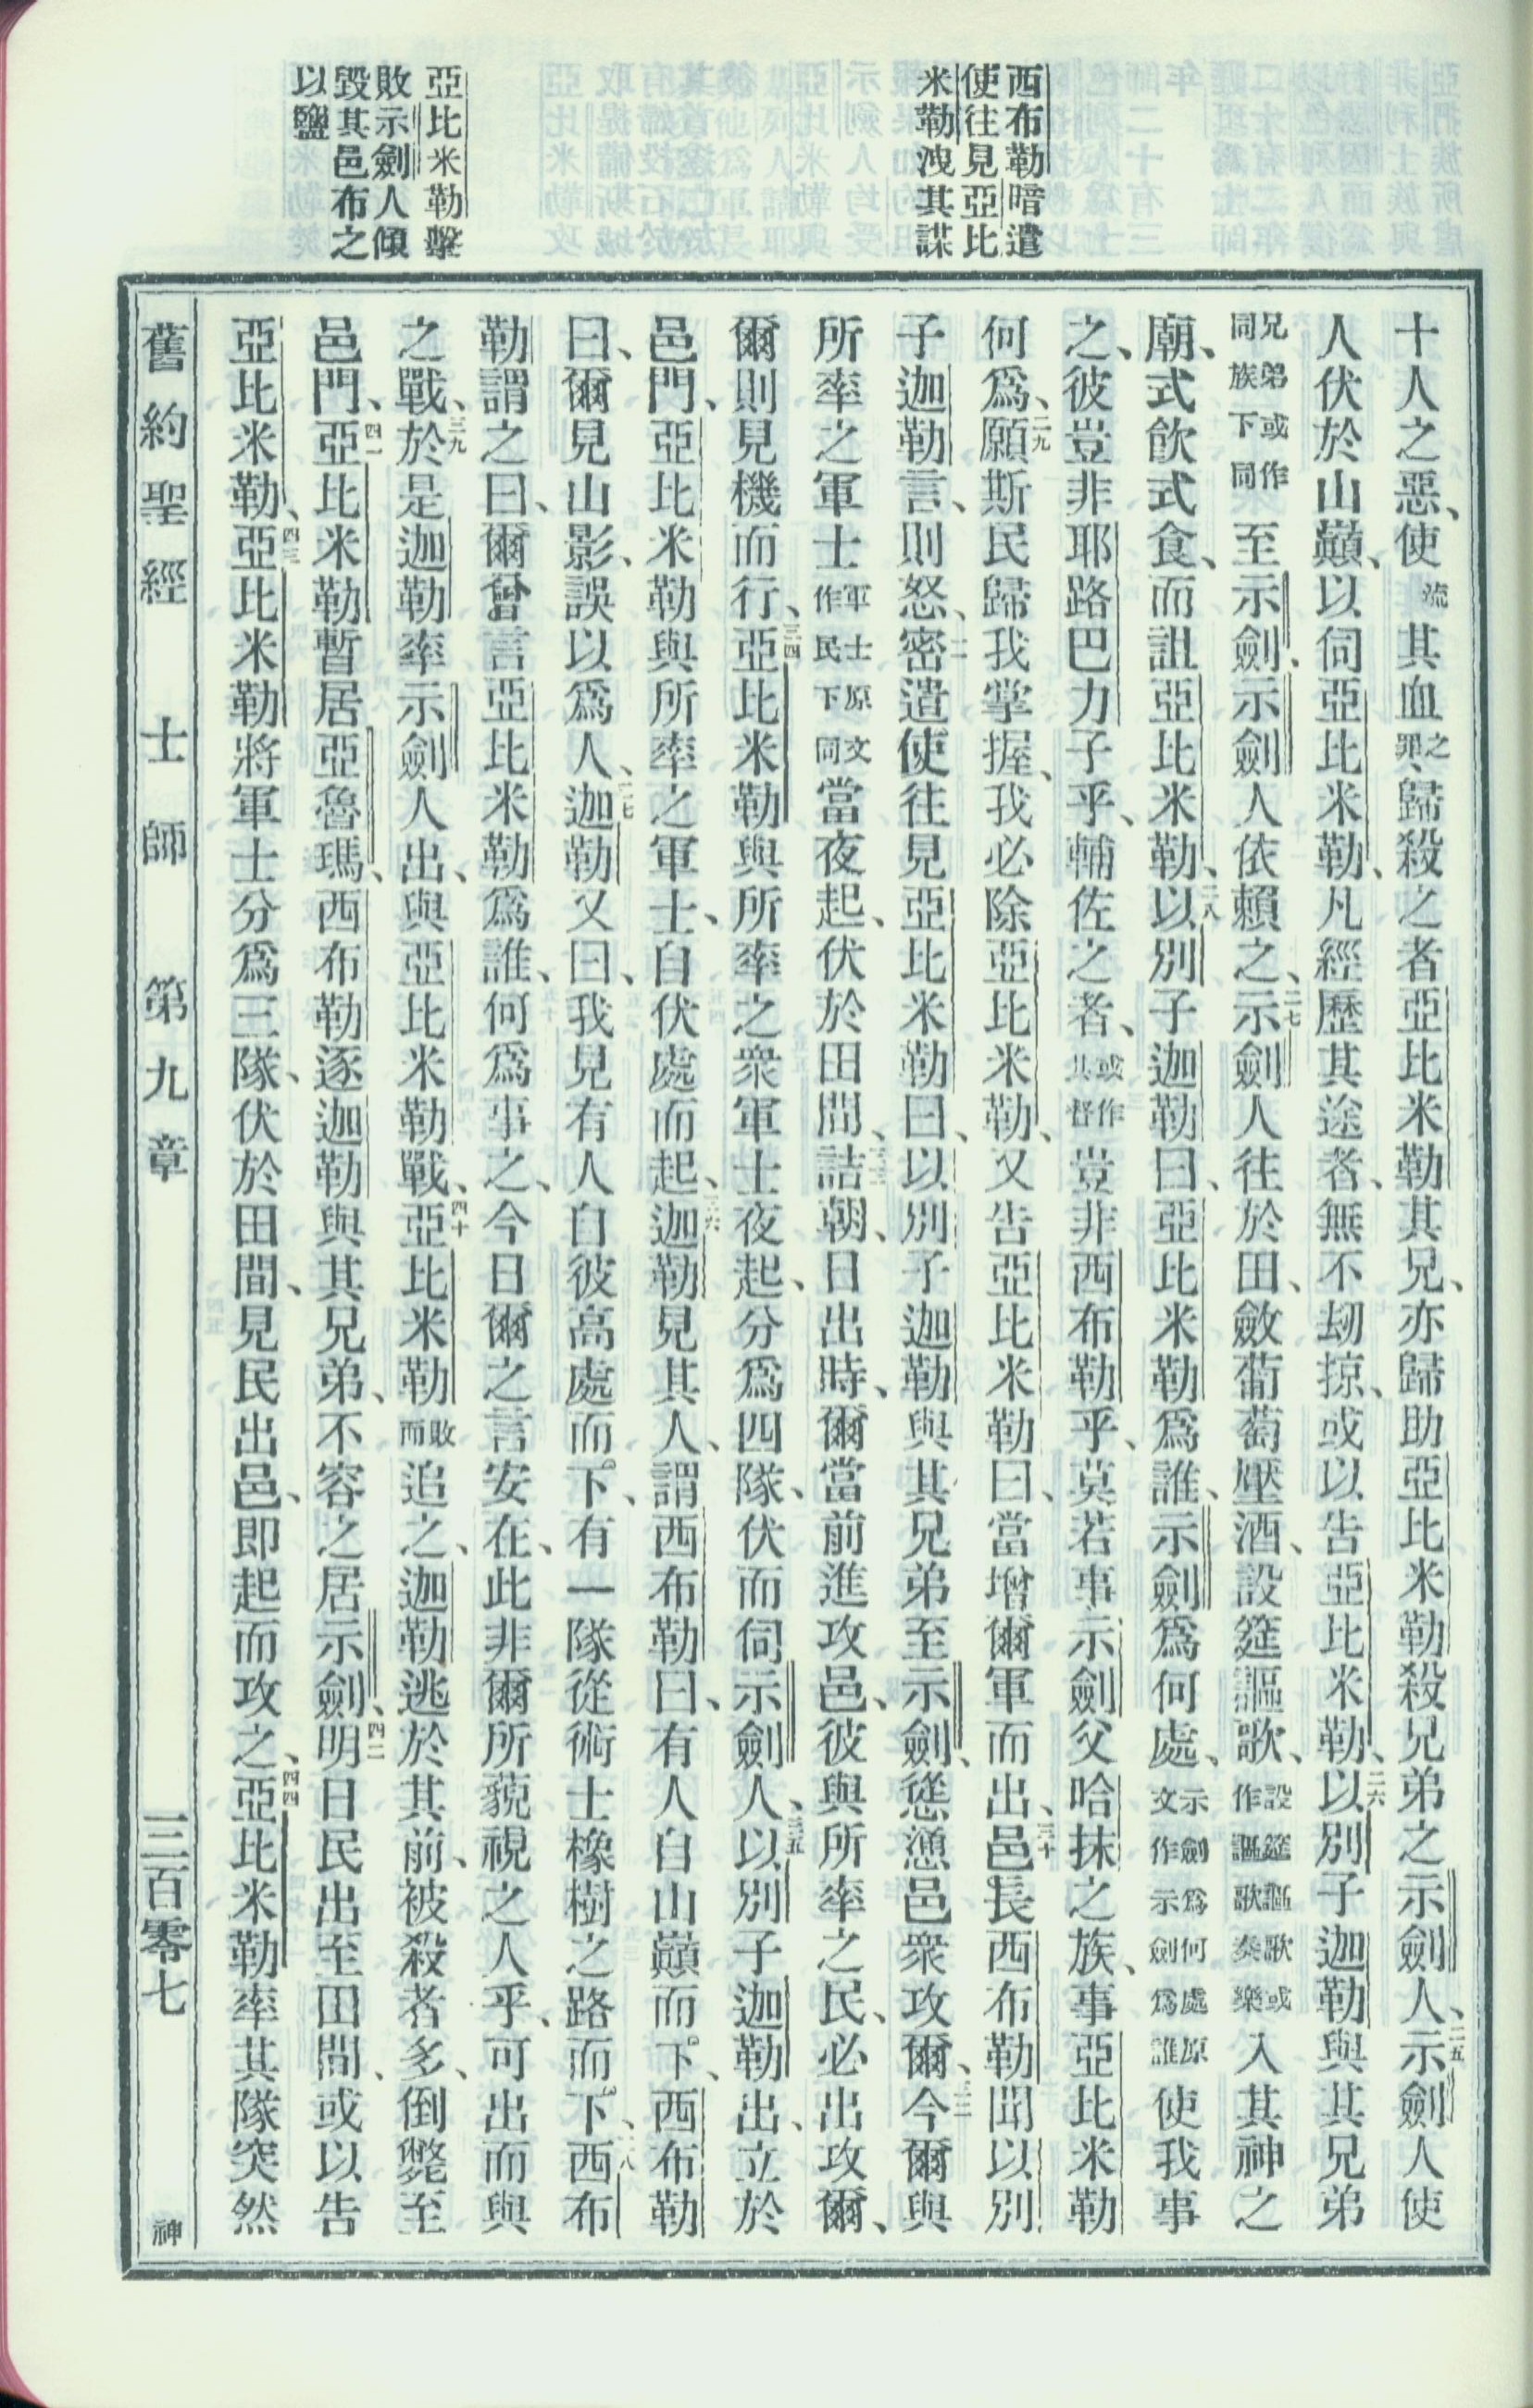 西布勒暗遣
使往見亞比
米勒洩其謀
亞比米勒擊
敗示劍人傾
毀其邑布之
以鹽
十人之惡、使流其血之罪、歸殺之者亞比米勒其兄、亦歸助亞比米勒殺兄弟之示劍人、二五示劍人使
人伏於山巔、以伺亞比米勒、凡經歷其途者、無不刼掠、或以告亞比米勒、二六以別子迦勒與其兄弟
兄弟或作同族下同至示劍、示劍人依賴之、二七示劍人往於田、斂葡萄壓酒、設筵謳歌、設筵謳歌或作謳歌奏樂入其神之
廟、式飲式食、而詛亞比米勒、二八以別子迦勒曰、亞比米勒爲誰、示劍爲何處、示劍爲何處原文作示劍爲誰使我事
之、彼豈非耶路巴力子乎、輔佐之者、或作其督豈非西布勒乎、莫若事示劍父哈抹之族、事亞比米勒
何爲、二九願斯民歸我掌握、我必除亞比米勒、又告亞比米勒曰、當增爾軍而出、三十邑長西布勒聞以別
子迦勒言、則怒、三一密遣使往見亞比米勒曰、以別子迦勒與其兄弟至示劍、慫慂邑衆攻爾、三二今爾與
所率之軍士軍士原文作民下同當夜起、伏於田間、三三詰朝、日出時、爾當前進攻邑、彼與所率之民、必出攻爾、
爾則見機而行、三四亞比米勒與所率之衆軍士夜起、分爲四隊、伏而伺示劍人、三五以別子迦勒出、立於
邑門、亞比米勒與所率之軍士、自伏處而起、三六迦勒見其人、謂西布勒曰、有人自山巔而下、西布勒
曰、爾見山影、誤以爲人、三七迦勒又曰、我見有人自彼高處而下、有一隊從術士橡樹之路而下、三八西布
勒謂之曰、爾曾言亞比米勒爲誰、何爲事之、今日爾之言安在、此非爾所藐視之人乎、可出而與
之戰、三九於是迦勒率示劍人出、與亞比米勒戰、四十亞比米勒敗而追之、迦勒逃於其前、被殺者多、倒斃至
邑門、四一亞比米勒暫居亞魯瑪、西布勒逐迦勒與其兄弟、不容之居示劍、四二明日民出至田間、或以告
亞比米勒、四三亞比米勒將軍士分爲三隊、伏於田間、見民出邑、即起而攻之、四四亞比米勒率其隊突然
舊約聖經 士師 第九章 三百零七 神